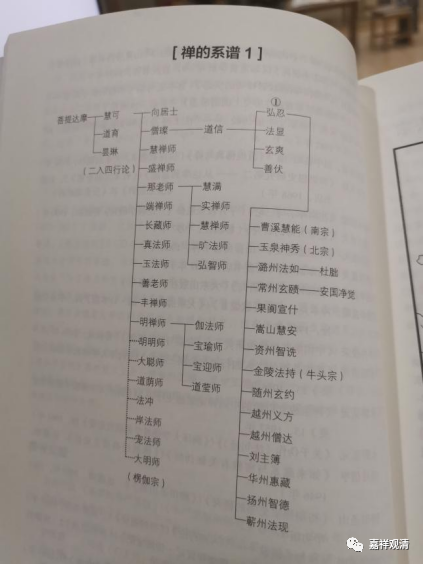 [禅的系谱1]
①
菩提达摩 慧可 向居士 弘忍
道育 僧璨 道信 法显
昙琳 慧禅师 玄爽
(二入四行论) 盛禅师 善伏
那老师 慧满
端禅师 实禅师
长藏师 慧禅师 曹溪慧能(南宗)
真法师 旷法师 玉泉神秀(北宗)
玉法师 弘智师 潞州法如 杜朏
善老师 常州玄赜 安国净觉
丰禅师 果阆宣什
明禅师 伽法师 嵩山慧安
胡明师 宝瑜师 资州智诜
大聪师 宝迎师 金陵法持(牛头宗)
道荫师 道莹师 随州玄约
法冲 越州义方
岸法师 越州僧达
宠法师 刘主簿
大明师 华州惠藏
(楞伽宗) 扬州智德
蕲州法现
嘉祥观清